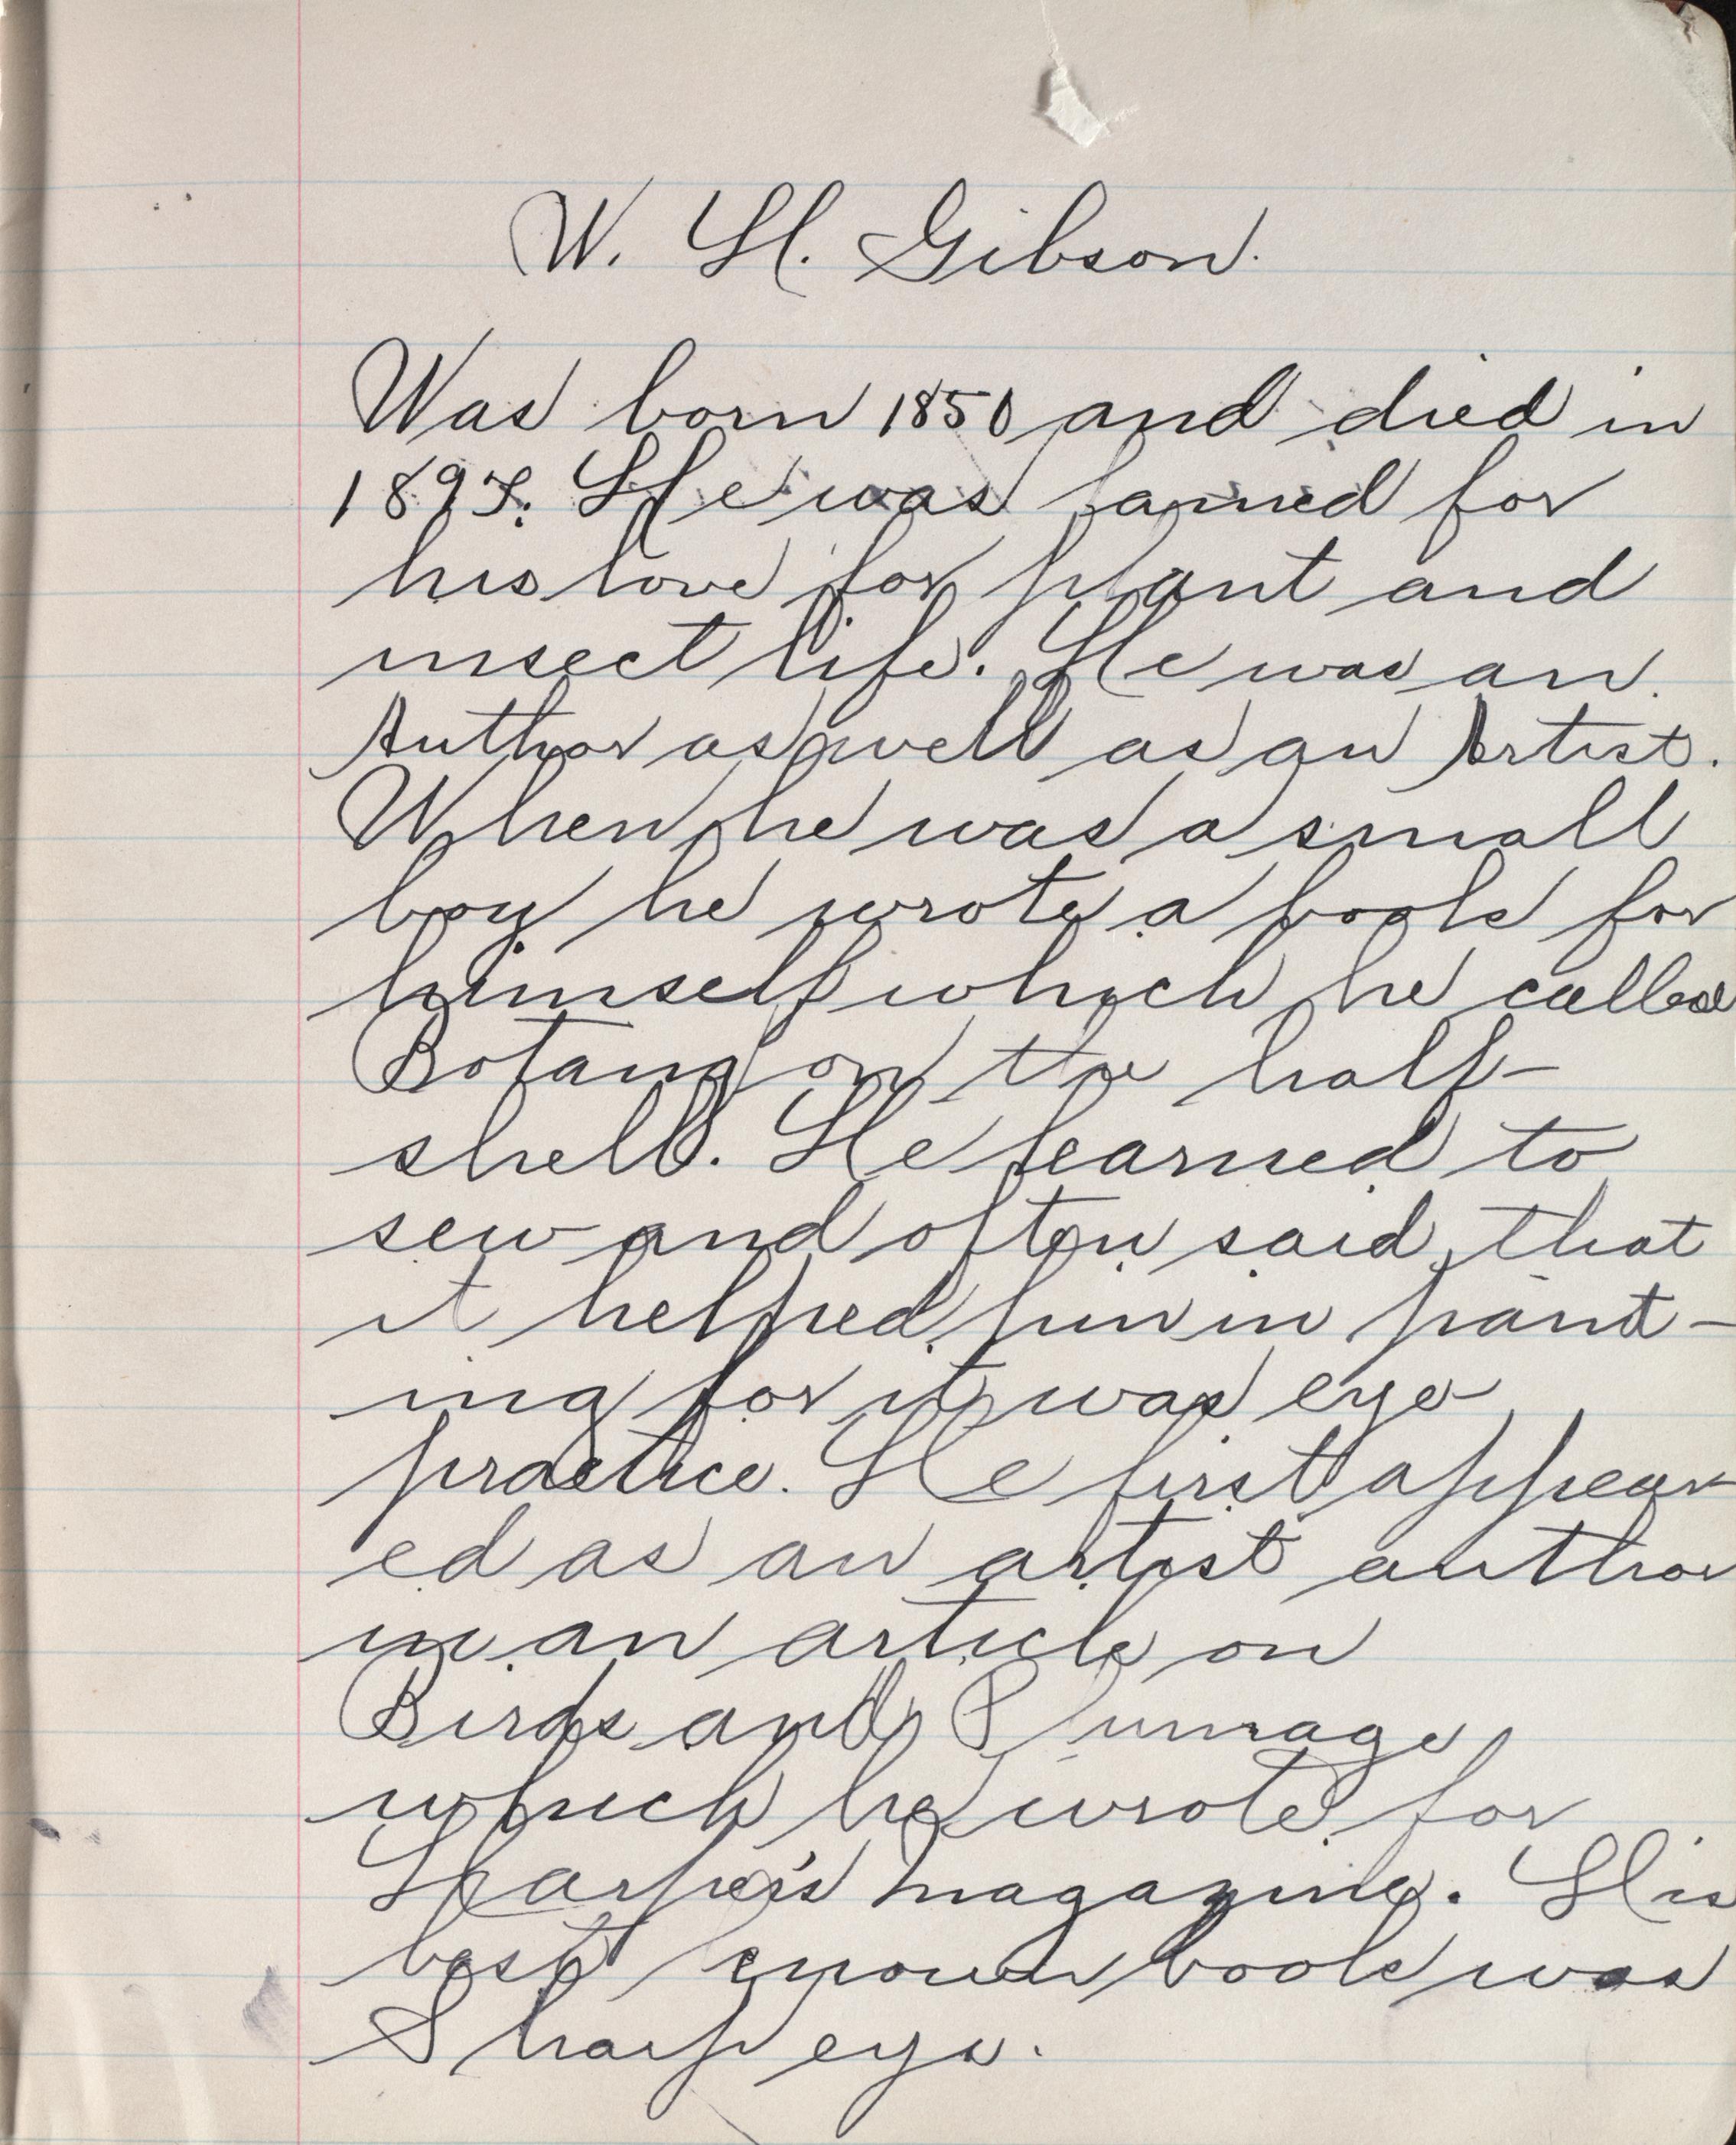 W. H. Gibson.
Was born 1850 and died in
1897. He was famed for
his love for plant and
insect life. He was an
Author as well as an Artist.
When he was a small
boy he wrote a book for
himself which he called
Botany on the half-
shell. He learned to
sew and often said that
it helped him in paint-
ing for it was eye
practice. He first appear-
ed as an artist author
in an article on
Birds and Plumage
which he wrote for
Harper's magazine. His
best known book was
Sharp eye.